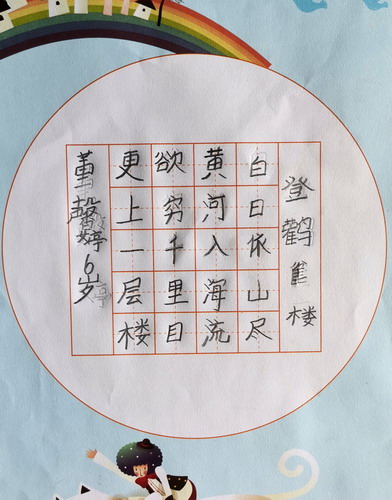 登鹳雀楼
白日依山尽
黄河入海流
欲穷千里目
更上一层楼
董馨婷6岁